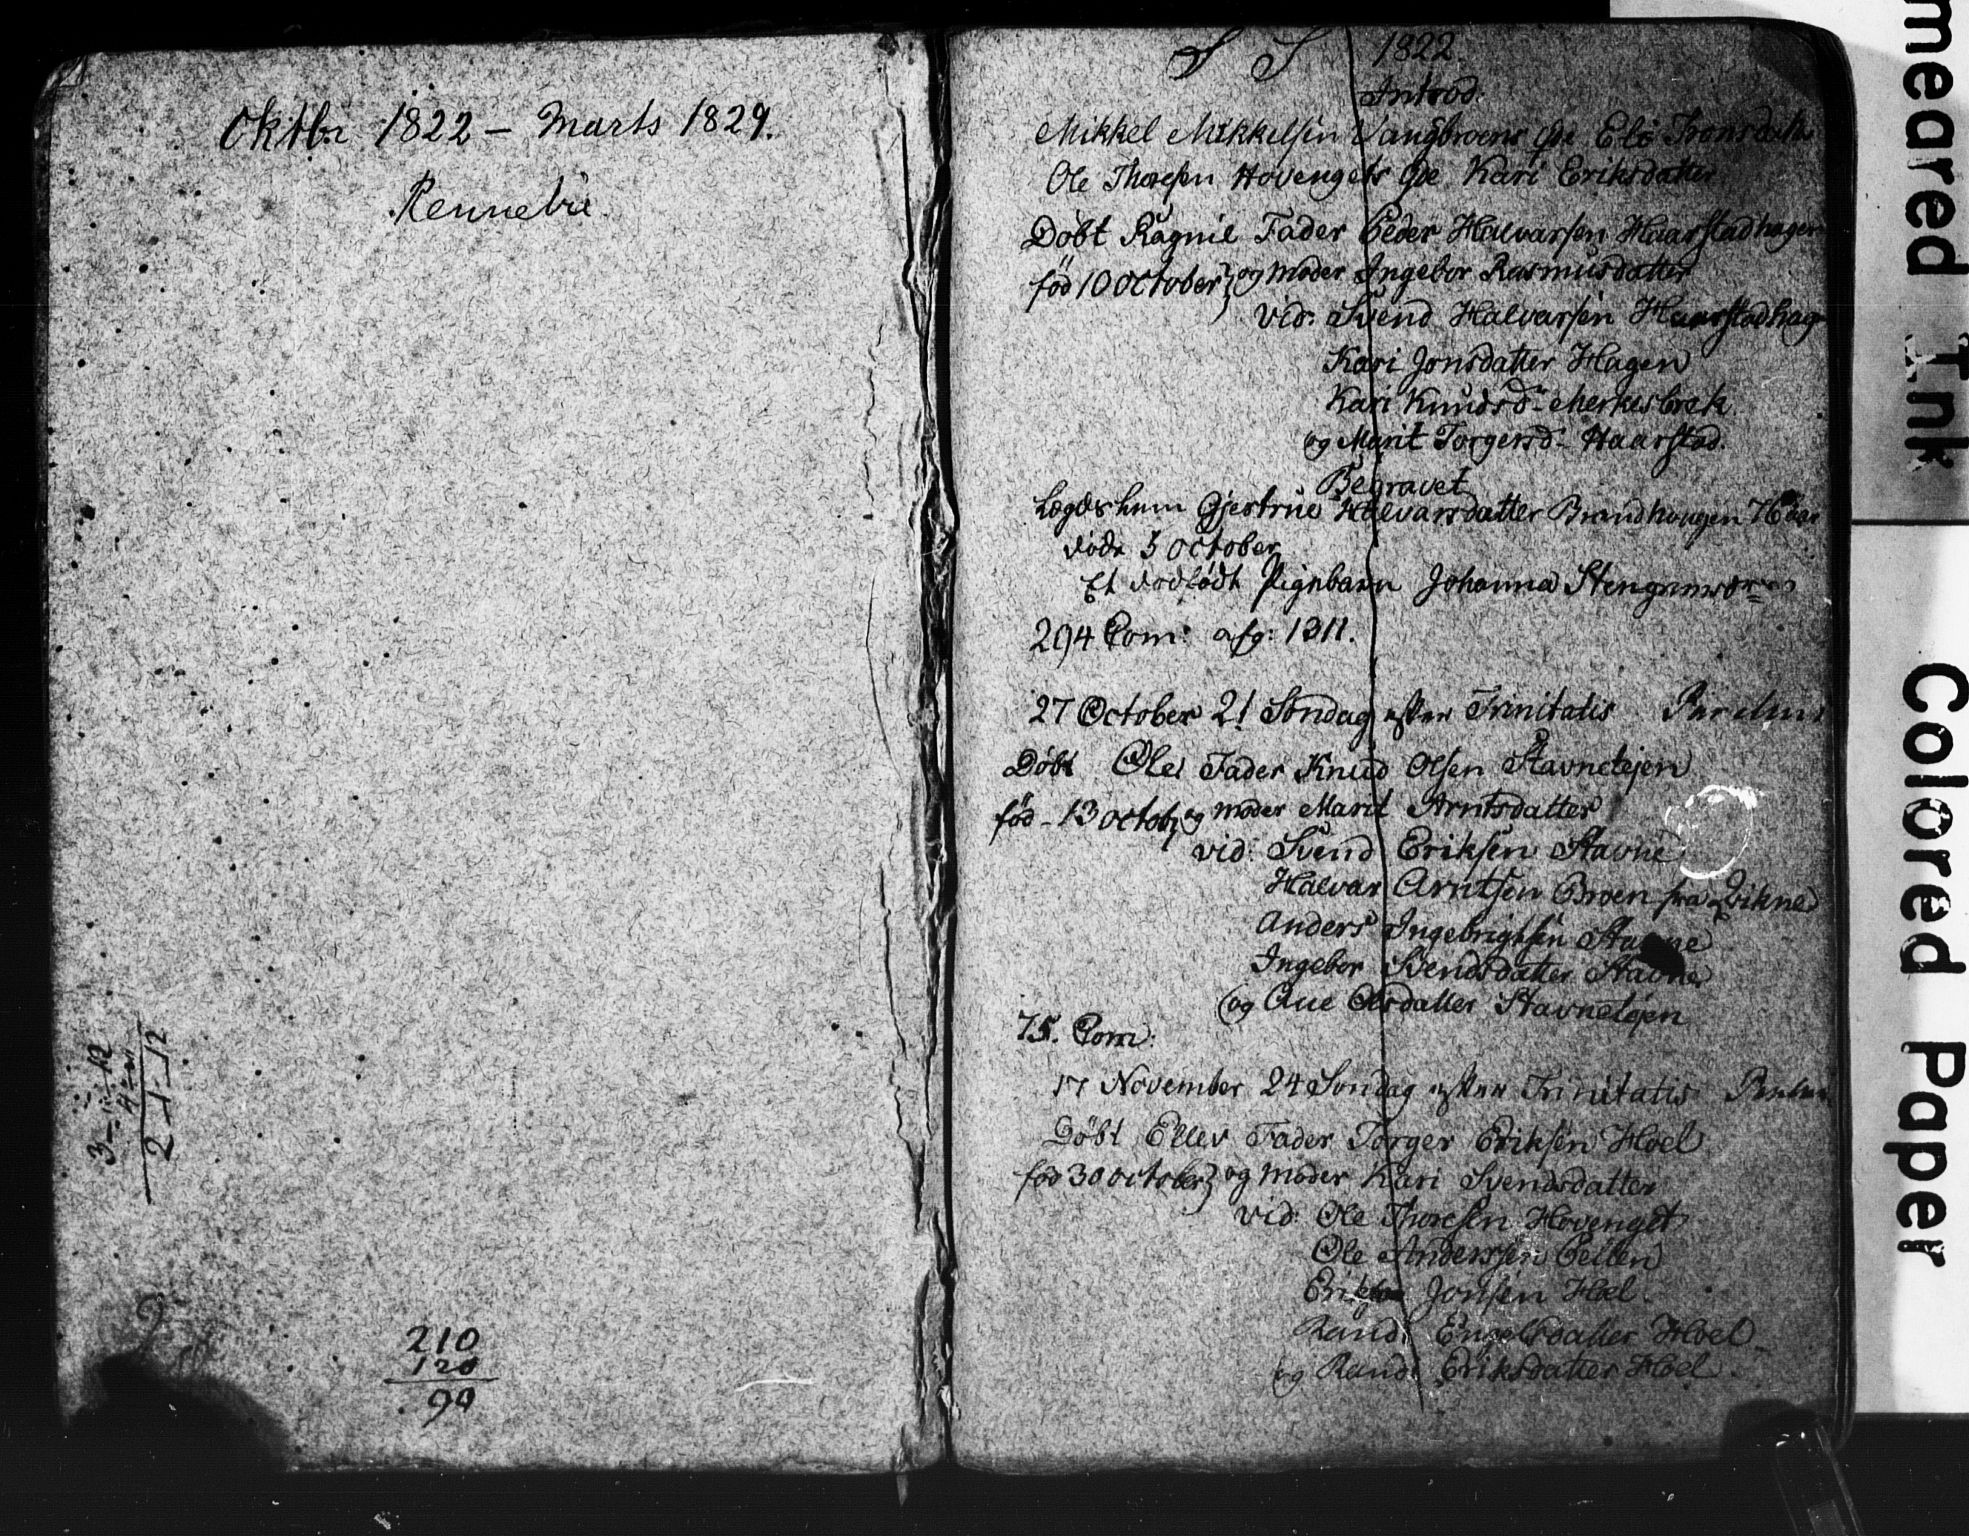 Oktbr 1822 - Marts 1829.
Rennebu
3-
2-1-12
210
120
90
1822
Introd:
Mikkel Mikkelsen Vangbroens qde Eli Tronsdatter
Ole Thoresen Hovengets qde Kari Eriksdatter
Døbt Ragnil Fader Peder Halvarsen Haarstadhagen
fød 10 October og Moder Ingebor Rasmusdatter
vid: Svend Halvarsen Haarstadhag
Kari Jonsdatter Hagen
Kari Knudsd- Merkesbrek
og Marit Torgersd- Haarstad.
Begravet
Lægdslem Gjertrue Halvarsdatter Brandhougen 76 aar
døde 5 October
Et dødfødt Pigebarn Johanna
294 Com: afg: 1311.
27 October 21 Søndag efter Trinitatis
Døbt Ole Fader Knud Olsen Stavnetøjen
fød - 13 octob og moder Marit Arntsdatter
vid: Svend Eriksen Stavne
Halvar Arntsen Broen fra Qvikne
Anders Ingebrigtsen Stavne
Ingebor Svendsdatter Stavne
og Ane Olsdatter Stavnetøjen
75. Com:
17 November 24 Søndag efter Trinitatis
Døbt Ellev Fader Torger Eriksen Hoel
fød 30 october og moder Kari Svendsdatter
vid: Ole Thoresen Hovenget
Ole Anderssen
Erik Jonsen Hoel.
Randi Engelsdatter Hoel
og Randi Eriksdatter Hoel.
meared Ink
Colored Paper